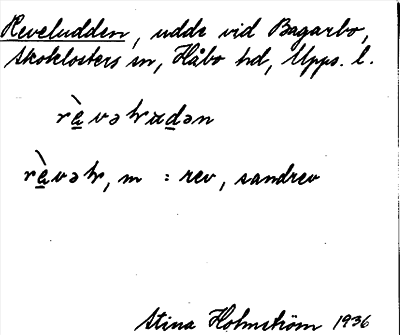 Reveludden, udde vid Bagarbo,
Skoklosters sn, Håbo hd, Upps. l.
rὲvəłrudən
rὲvəłr, m = rev, sandrev
Stina Holmström 1936